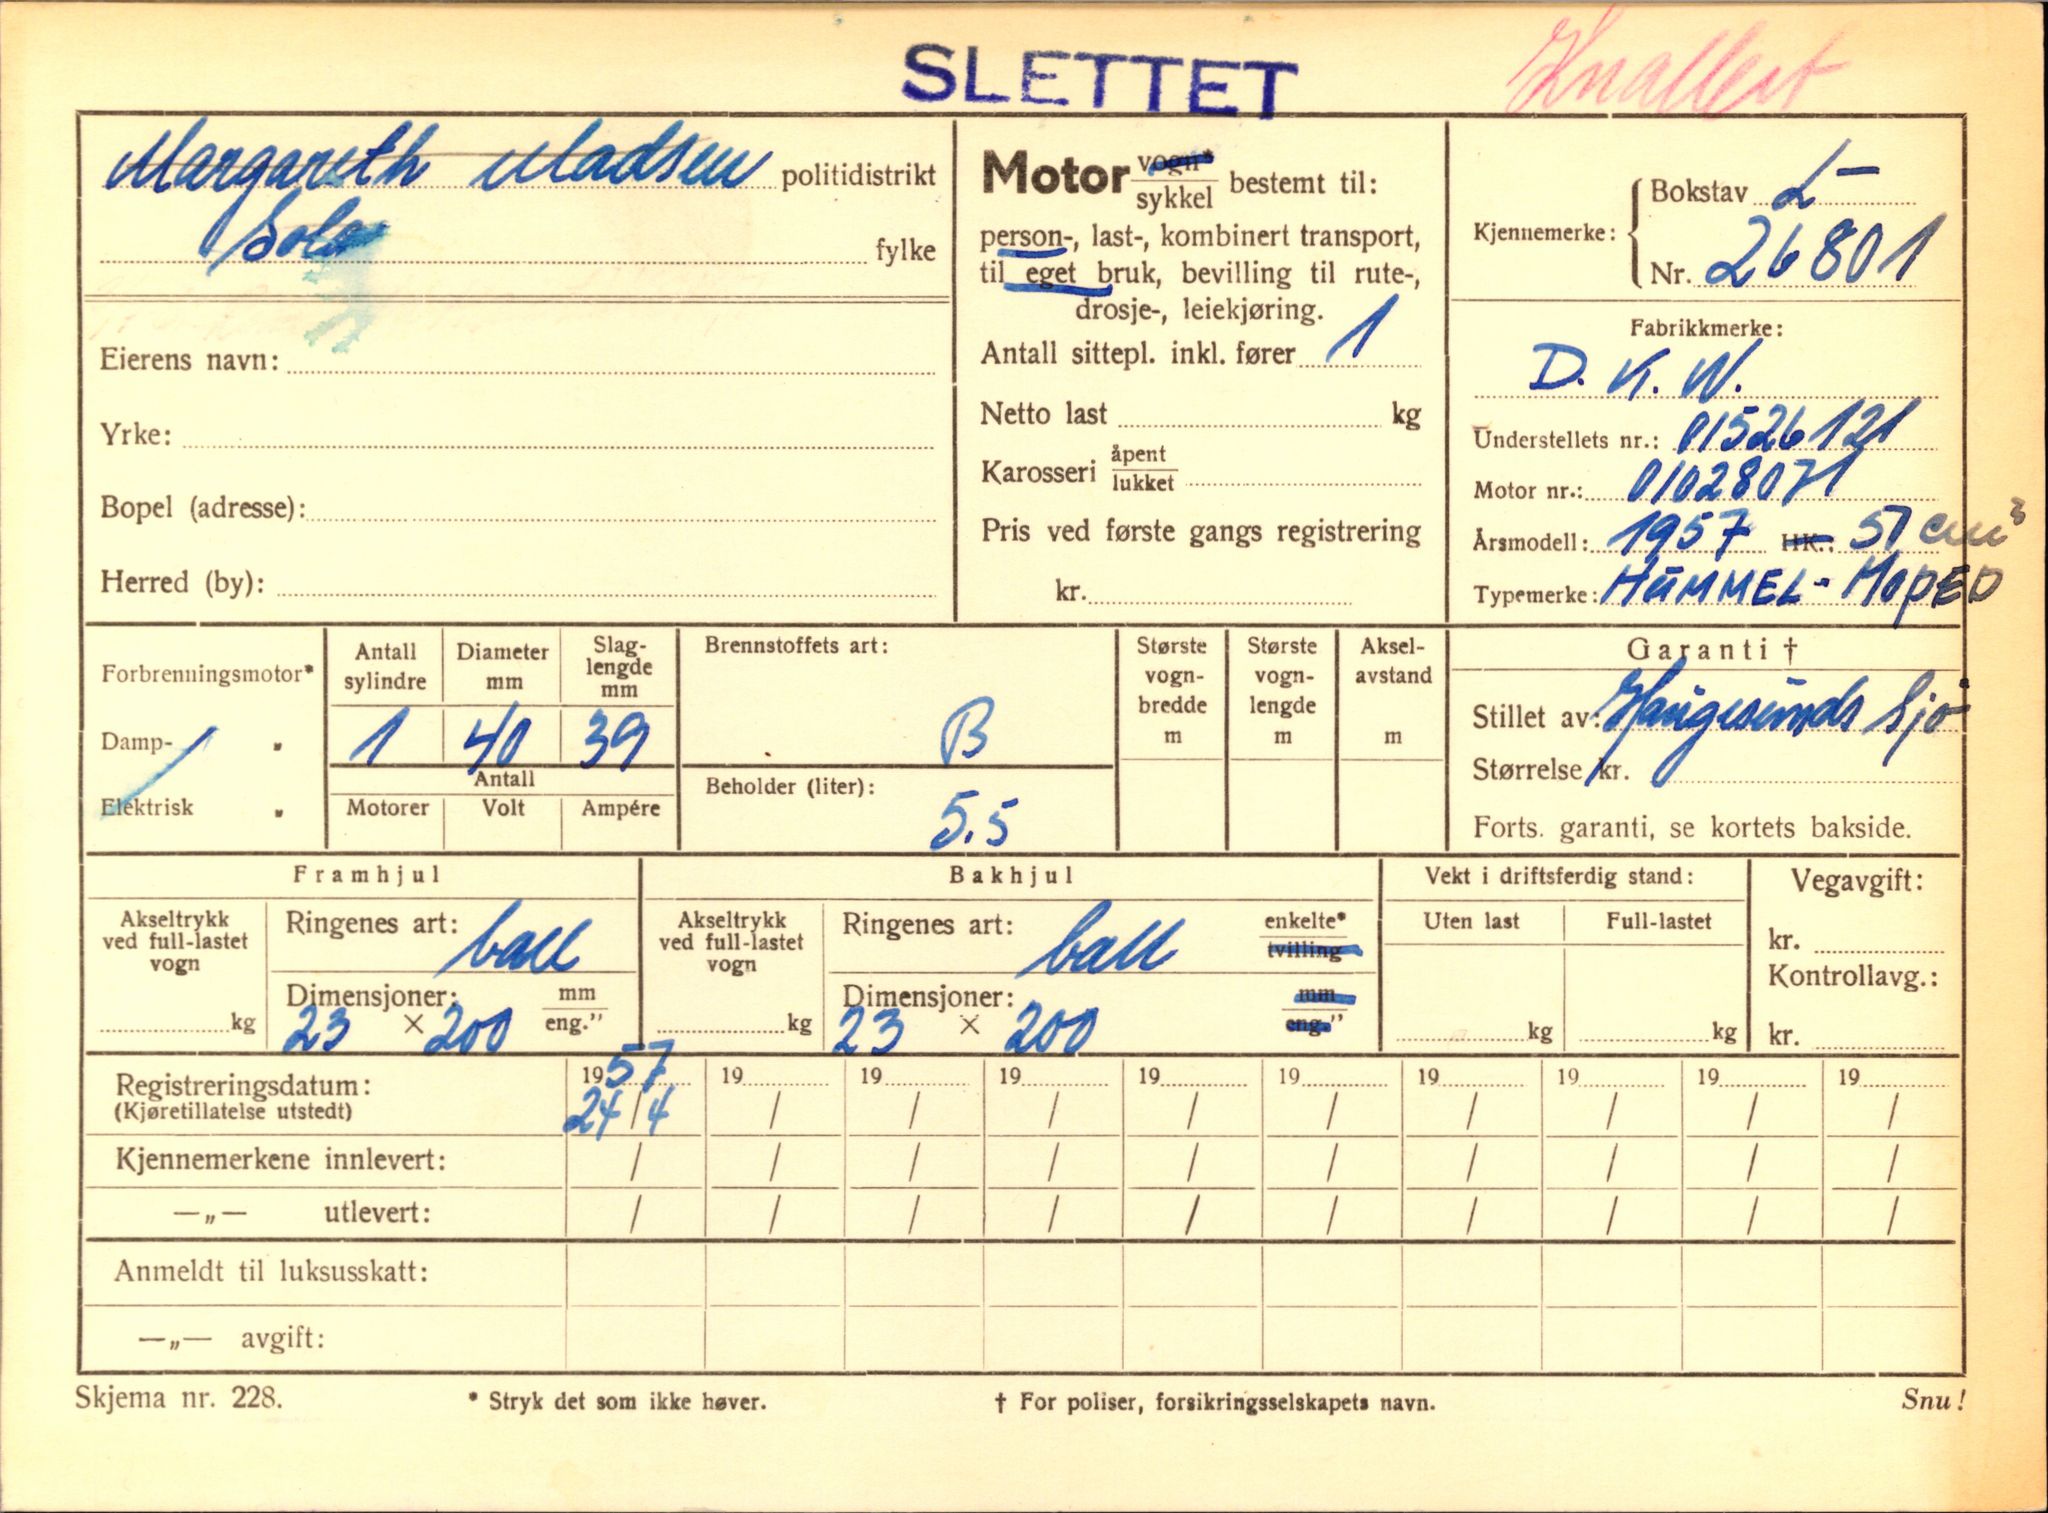 SLETTET
Knallert
Margareth Madsen politidistrikt
Sola fylke
Eierens navn:
Yrke:
Bopel (adresse):
Herred (by):
Motor vogn* / sykkel bestemt til:
person-, last-, kombinert transport,
til eget bruk, bevilling til rute-,
drosje-, leiekjøring.
Antall sittepl. inkl. fører 1
Netto last kg
Karosseri åpent / lukket
Pris ved første gangs registrering
kr.
Kjennemerke:
Bokstav L-
Nr. 26801
Fabrikkmerke:
D. K. W.
Understellets nr.: 01526121
Motor nr.: 01028071
Årsmodell: 1957 HK.: 51 cm³
Typemerke: HUMMEL - MOPED
Forbrenningsmotor*
Damp- "
Elektrisk "
Antall sylindre
1
Diameter mm
40
Slag-
lengde
mm
39
Antall
Motorer Volt Ampére
Brennstoffets art:
B
Beholder (liter):
5.5
Største
vogn-
bredde
m
Største
vogn-
lengde
m
Aksel-
avstand
m
Garanti †
Stillet av: Haugesunds Sjø
Størrelse kr.
Forts. garanti, se kortets bakside.
Framhjul
Akseltrykk
ved full-lastet
vogn
kg
Ringenes art: ball
Dimensjoner: mm / eng."
23 × 200
Bakhjul
Akseltrykk
ved full-lastet
vogn
kg
Ringenes art: ball enkelte* / tvilling
Dimensjoner: mm / eng."
23 × 200
Vekt i driftsferdig stand:
Uten last Full-lastet
kg kg
Vegavgift:
kr.
Kontrollavg.:
kr.
Registreringsdatum: 1957 19 19 19 19 19 19 19 19 19
(Kjøretillatelse utstedt) 24/4 / / / / / / / / /
Kjennemerkene innlevert: / / / / / / / / / /
—„— utlevert: / / / / / / / / / /
Anmeldt til luksusskatt:
—„— avgift:
Skjema nr. 228. * Stryk det som ikke høver. † For poliser, forsikringsselskapets navn. Snu!